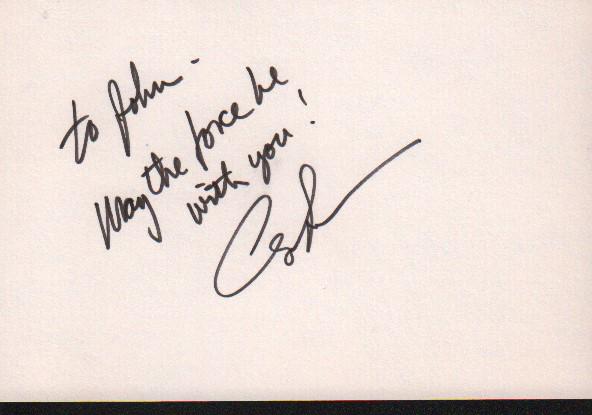 to John -
May the force be
with you!